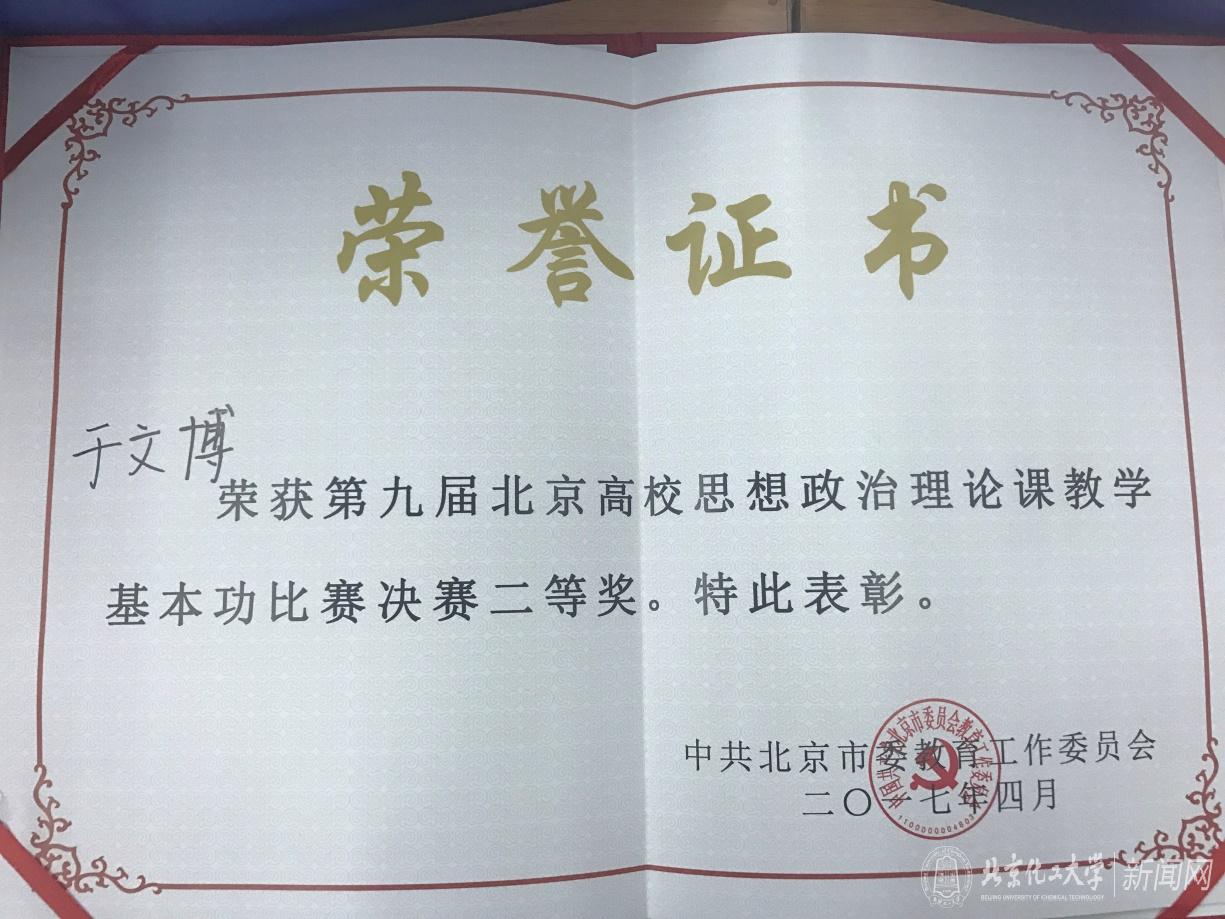 荣誉证书
于文博
荣获第九届北京高校思想政治理论课教学
基本功比赛决赛二等奖。特此表彰。
中共北京市委教育工作委员会
二〇一七年四月
北京化工大学 新闻网
BEIJING UNIVERSITY OF CHEMICAL TECHNOLOGY